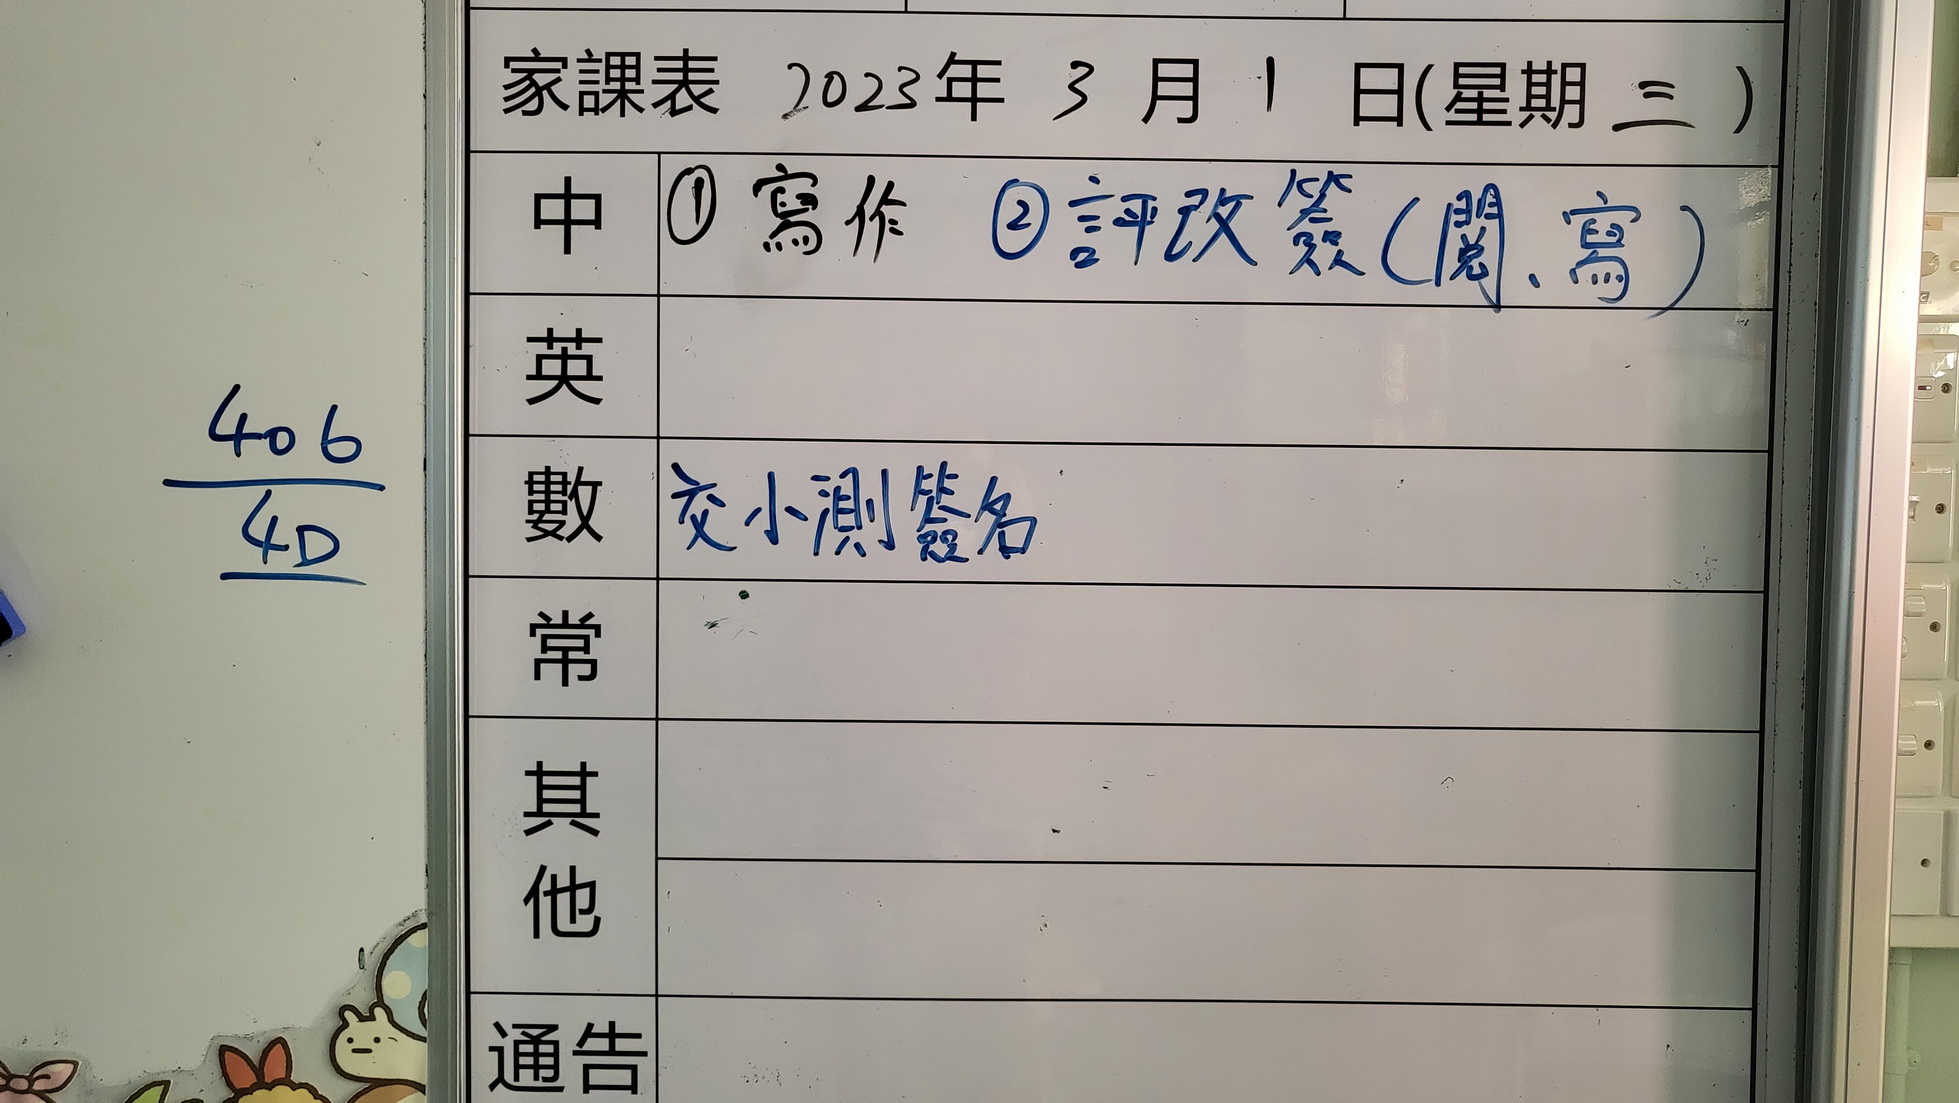 家課表 2023年 3 月 1 日(星期 三 )
中 ① 寫作 ② 評改簽(閱、寫)
英
406
4D
數 交小測簽名
常
其他
通告